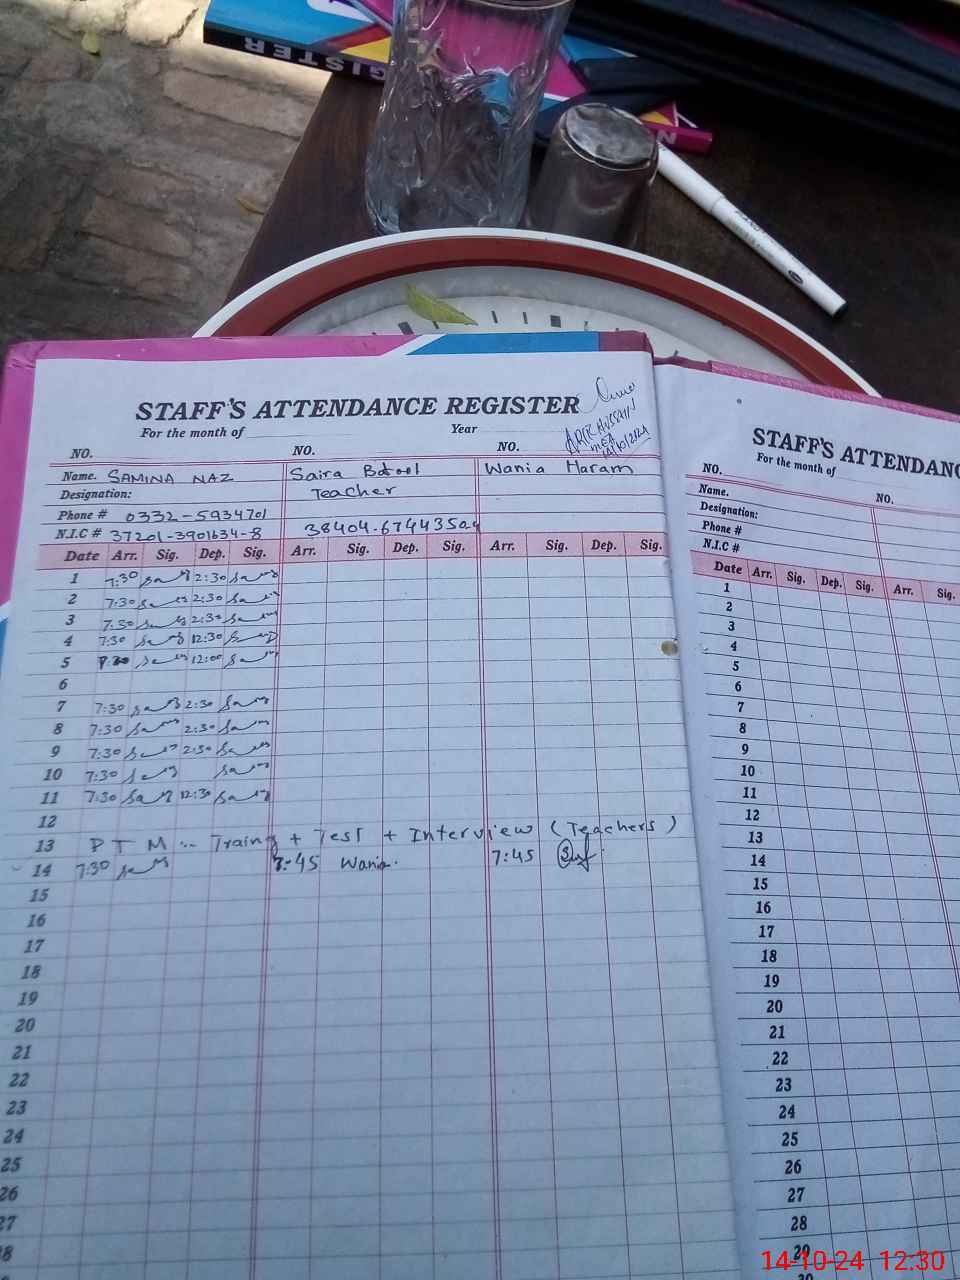 REGISTER
STAFF'S ATTENDANCE REGISTER
For the month of Year
ARIF HUSSAIN
MEA
14/10/2024
NO. NO. NO.
Name. SAMINA NAZ Saira Batool Wania Haram
Designation: Teacher
Phone # 0332-5934701
N.I.C # 37201-3901634-8
Date Arr. Sig. Dep. Sig. Arr. Sig. Dep. Sig. Arr. Sig. Dep. Sig.
1 7:30 2:30
2 7:30 2:30
3 7:30 2:30
4 7:30 12:30
5 7:30 12:00
6
7 7:30 2:30
8 7:30 2:30
9 7:30 2:30
10 7:30
11 7:30 12:30
12
13 P T M Traing + Test + Interview (Teachers)
14 7:30 7:45 Wania. 7:45
15
16
17
18
19
20
21
22
23
24
25
26
27
28
STAFF'S ATTENDANC
For the month of
NO. NO.
Name.
Designation:
Phone #
N.I.C #
Date Arr. Sig. Dep. Sig. Arr. Sig.
1
2
3
4
5
6
7
8
9
10
11
12
13
14
15
16
17
18
19
20
21
22
23
24
25
26
27
28
29
30
14-10-24 12:30